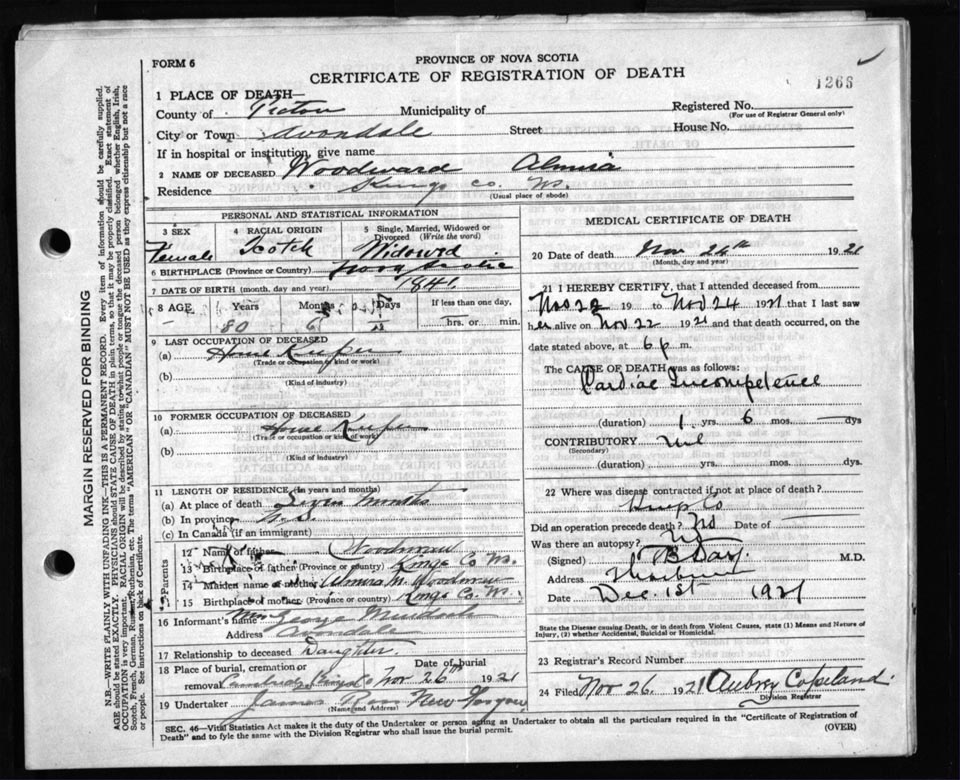 FORM 6
PROVINCE OF NOVA SCOTIA
CERTIFICATE OF REGISTRATION OF DEATH
1266
1 PLACE OF DEATH—
County of Pictou Municipality of
Registered No.
(For use of Registrar General only)
City or Town Avondale Street House No.
If in hospital or institution, give name
2 NAME OF DECEASED Woodward Almira
Residence Kings Co. N.S.
(Usual place of abode)
PERSONAL AND STATISTICAL INFORMATION
3 SEX Female
4 RACIAL ORIGIN Scotch
5 Single, Married, Widowed or Divorced (Write the word) Widowed
6 BIRTHPLACE (Province or Country) Nova Scotia
7 DATE OF BIRTH (month, day and year) 1841
8 AGE Years 80 Months 6 Days If less than one day, hrs. or min.
9 LAST OCCUPATION OF DECEASED
(a) House Keeper
(Trade or occupation or kind of work)
(b)
(Kind of industry)
10 FORMER OCCUPATION OF DECEASED
(a) House Keeper
(Trade or occupation or kind of work)
(b)
(Kind of industry)
11 LENGTH OF RESIDENCE (in years and months)
(a) At place of death Seven Months
(b) In province N.S.
(c) In Canada (if an immigrant)
Parents
12 Name of father
13 Birthplace of father (Province or country) Kings Co N.S.
14 Maiden name of mother Almira M.
15 Birthplace of mother (Province or country) Kings Co. N.S.
16 Informant's name Mrs George Murdoch
Address Avondale
17 Relationship to deceased Daughter
18 Place of burial, cremation or removal Date of burial Nov 26th 1921
19 Undertaker James Ross New Glasgow
(Name and Address)
MEDICAL CERTIFICATE OF DEATH
20 Date of death Nov 24th 1921
(Month, day and year)
21 I HEREBY CERTIFY, that I attended deceased from
Nov 22 19 to Nov 24 1921 that I last saw
her alive on Nov 22 1921 and that death occurred, on
date stated above, at 6 p m.
The CAUSE OF DEATH was as follows:
Cardiac Incompetence
(duration) 1 yrs. 6 mos. dys
CONTRIBUTORY Nil
(Secondary)
(duration) yrs. mos. dys.
22 Where was disease contracted if not at place of death?
Kings Co
Did an operation precede death? No Date of
Was there an autopsy? No
(Signed) M.D.
Address
Date Dec. 1st 1921
State the Disease causing Death, or in death from Violent Causes, state (1) Means and Nature of
Injury, (2) whether Accidental, Suicidal or Homicidal.
23 Registrar's Record Number
24 Filed Nov 26 1921 Aubrey Copeland
Division Registrar
SEC. 46—Vital Statistics Act makes it the duty of the Undertaker or person acting as Undertaker to obtain all the particulars required in the "Certificate of Registration of
Death" and to fyle the same with the Division Registrar who shall issue the burial permit.
(OVER)
MARGIN RESERVED FOR BINDING
N.B.—WRITE PLAINLY WITH UNFADING INK—THIS IS A PERMANENT RECORD. Every item of information should be carefully supplied.
AGE should be stated EXACTLY. PHYSICIANS should STATE CAUSE OF DEATH in plain terms, so that it may be properly classified. Exact statement of
OCCUPATION is very important. RACIAL ORIGIN will be described by stating to what people or tongue the deceased person belonged whether English, Irish,
Scotch, French, German, Russian, Ruthenian, etc. The terms "AMERICAN" OR "CANADIAN" MUST NOT BE USED as they express citizenship but not a race
or people. See instructions on back of Certificate.